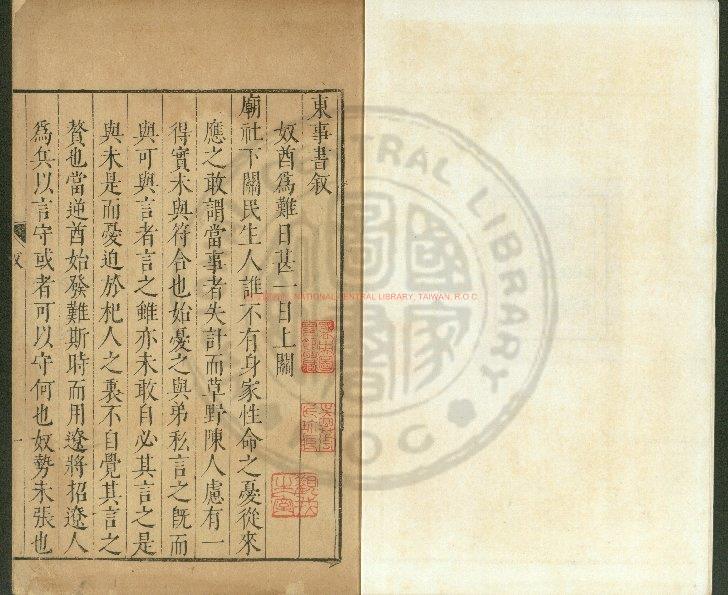 東事書叙
奴酋為難日甚一日上關
廟社下關民生人誰不有身家性命之憂從來
應之敢謂當事者失計而草野陳人慮有一
得實未與符合也始憂之與弟私言之既而
與可與言者言之雖亦未敢自必其言之是
與未是而憂迫於杞人之裏不自覺其言之
贅也當逆酋始發難斯時而用遼將招遼人
為兵以言守或者可以守何也奴勢未張也
叙
一
NATIONAL CENTRAL LIBRARY, TAIWAN, R.O.C
CENTRAL LIBRARY
R.O.C
國家圖書館